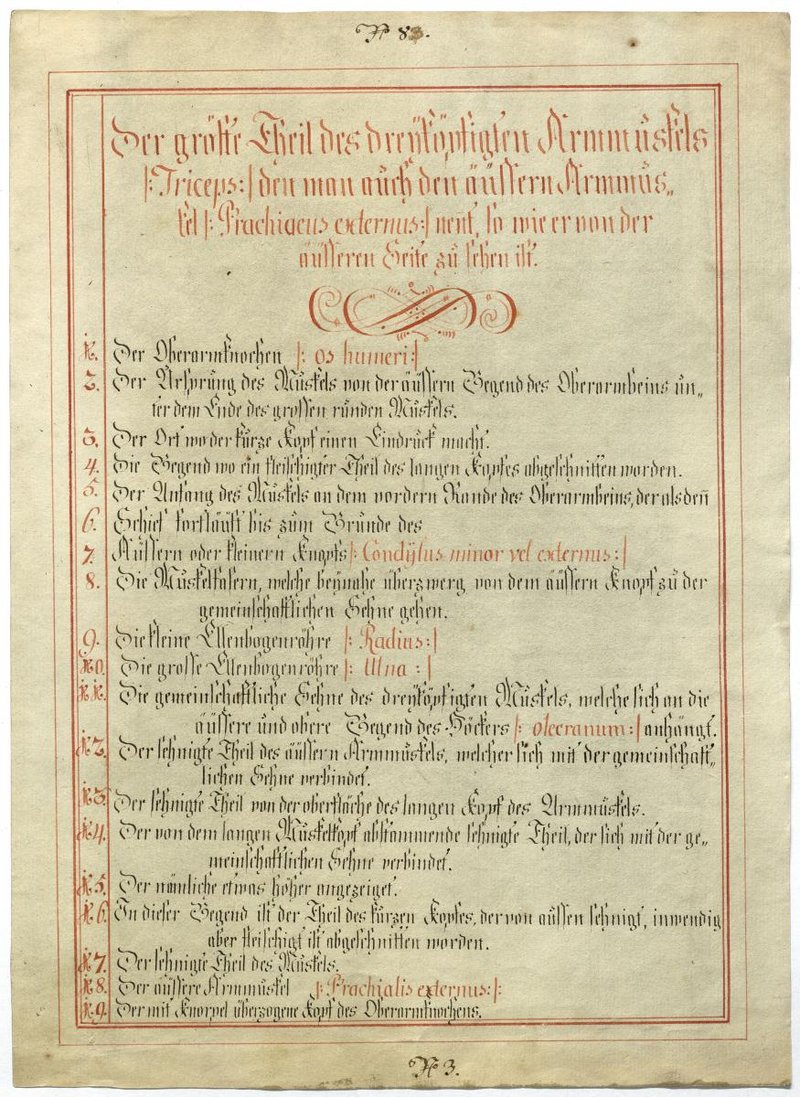 No 83.
Der größte Theil des dreÿköpfigten Armmuskels
|: Triceps :| den man auch den äußern Armmus„
kel |: Brachiaeus externus :| nent, so wie er von der
äusseren Seite zu sehen ist.
1. Der Oberarmknochen |: os humeri :|
2. Der Ursprung des Muskels von der äussern Gegend des Oberarmbeins un„
ter dem Ende des grossen runden Muskels.
3. Der Ort wo der kurze Kopf einen Eindruck macht.
4. Die Gegend wo ein fleischigter Theil des langen Kopfes abgeschnitten worden.
5. Der Anfang des Muskels an dem vordern Rande des Oberarmbeins, der alsdeñ
6. Schief fortläuft bis zum Grunde des
7. Äussern oder kleinern Knopfs |: Condÿlus minor vel externus :|
8. Die Muskelfasern, welche beÿnahe überzwerg von dem äussern Knopf zu der
gemeinschaftlichen Sehne gehen.
9. Die kleine Ellenbogenröhre |: Radius :|
10. Die grosse Ellenbogenröhre |: Ulna :|
11. Die gemeinschaftliche Sehne des dreÿköpfigten Muskels, welche sich an die
äussere und obere Gegend des Höckers |: olecranum :| anhängt.
12. Der sehnigte Theil des äussern Armmuskels, welcher sich mit der gemeinschaft„
lichen Sehne verbindet.
13. Der sehnigte Theil von der oberfläche des langen Kopf des Armmuskels.
14. Der von dem langen Muskelkopf abstammende sehnigte Theil, der sich mit der ge„
meinschaftlichen Sehne verbindet.
15. Der nämliche etwas höher angezeiget.
16. In dieser Gegend ist der Theil des kurzen Kopfes, der von aussen sehnigt, inwendig
aber fleischigt ist abgeschnitten worden.
17. Der sehnigte Theil des Muskels.
18. Der äussere Armmuskel |: Brachialis externus :|:
19. Der mit Knorpel überzogene Kopf des Oberarmknochens.
No 3.